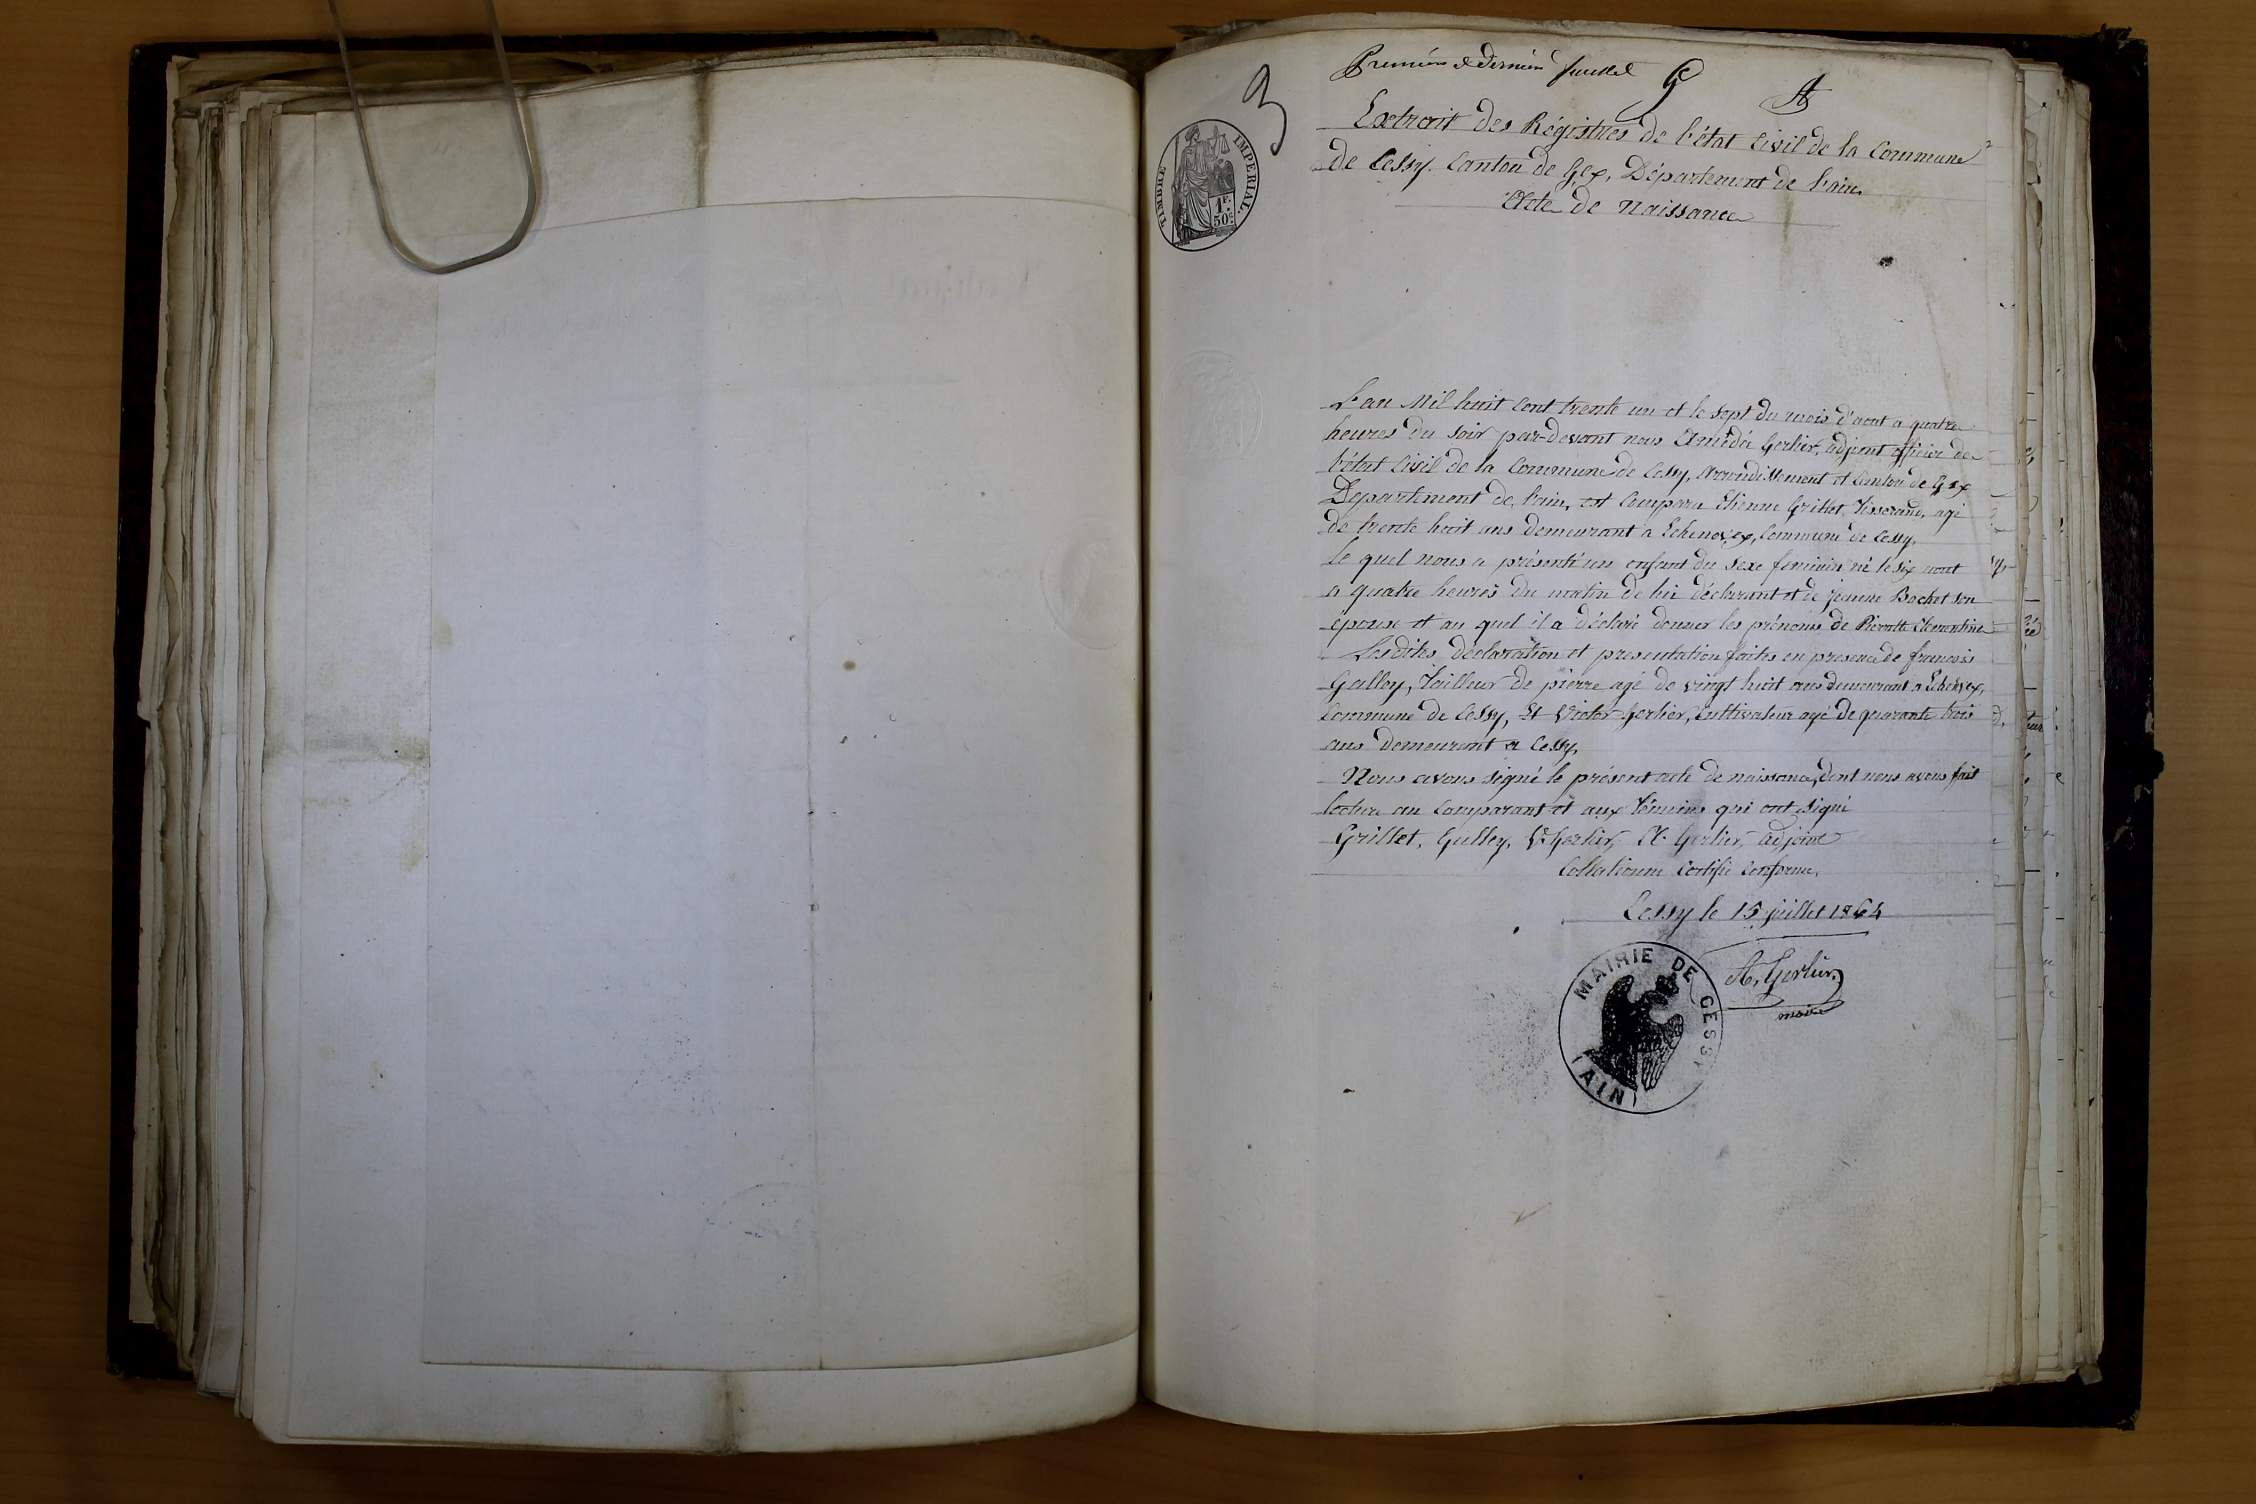 Première et dernière feuillet
3
TIMBRE IMPERIAL.
1F. 50C.
Extrait des Régistres de l'état civil de la Commune
de Cessy. Canton de Gex, Département de l'ain.
Acte de Naissance
L'an Mil huit cent trente un et le sept du mois d'aout a quatre
heures du soir par-devant nous Amédée Gerlier, adjoint officier de
l'état civil de la Commune de Cessy, Arrondissement et Canton de Gex
Departement de l'ain, est comparu Etienne Grillet, Tisserand, agé
de trente huit ans demeurant a Echenevex, Commune de Cessy,
le quel nous a présenté un enfant du sexe feminin né le six aout
a quatre heures du matin de lui déclarant et de jeanne Bochet son
épouse et au quel il a déclaré donner les prénoms de Pierrette Clementine
Lesdites déclaration et presentation faites en presence de francois
Gulley, Tailleur de pierre agé de vingt huit ans demeurant a Echenevex,
Commune de Cessy, Et Victor Gerlier, Cultivateur agé de quarante trois
ans demeurant a Cessy,
Nous avons signé le présent acte de naissance, dont nous avons fait
lecture au Comparant et aux Témoins qui ont signé
Grillet, Gulley, V. Gerlier, A. Gerlier, adjoint
Collationné Certifié Conforme,
Cessy le 15 juillet 1864
A. Gerlier,
maire
MAIRIE DE CESSY
(AIN)